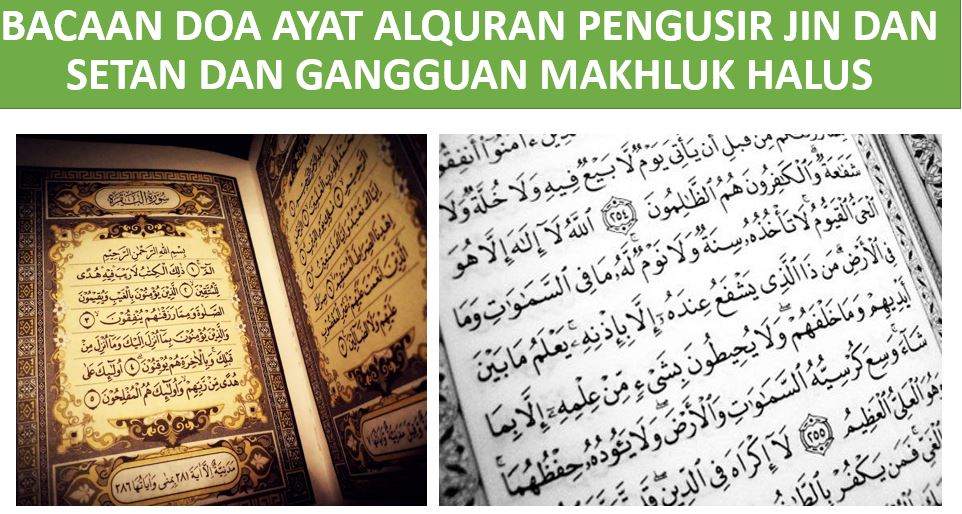 BACAAN DOA AYAT ALQURAN PENGUSIR JIN DAN
SETAN DAN GANGGUAN MAKHLUK HALUS
سُورَةُ الْبَقَرَةِ
بِسْمِ اللَّهِ الرَّحْمَٰنِ الرَّحِيمِ
الٓمٓ ١ ذَٰلِكَ الْكِتَٰبُ لَا رَيْبَ فِيهِ هُدًى
لِّلْمُتَّقِينَ ٢ الَّذِينَ يُؤْمِنُونَ بِالْغَيْبِ وَيُقِيمُونَ
الصَّلَوٰةَ وَمِمَّا رَزَقْنَٰهُمْ يُنفِقُونَ ٣
وَالَّذِينَ يُؤْمِنُونَ بِمَا أُنزِلَ إِلَيْكَ وَمَا أُنزِلَ مِن
قَبْلِكَ وَبِالْآخِرَةِ هُمْ يُوقِنُونَ ٤ أُولَٰئِكَ عَلَىٰ
هُدًى مِّن رَّبِّهِمْ وَأُولَٰئِكَ هُمُ الْمُفْلِحُونَ ٥
مَدَنِيَّةٌ إِلَّا آيَة ٢٨١ بِمِنًى وَآيَاتُهَا ٢٨٦
ءَامَنُوٓا۟ أَنفِقُوا۟
مِّن قَبْلِ أَن يَأْتِىَ يَوْمٌ لَّا بَيْعٌ فِيهِ وَلَا خُلَّةٌ وَلَا
شَفَٰعَةٌ وَالْكَٰفِرُونَ هُمُ الظَّٰلِمُونَ ٢٥٤ اللَّهُ لَآ إِلَٰهَ إِلَّا هُوَ
الْحَىُّ الْقَيُّومُ لَا تَأْخُذُهُۥ سِنَةٌ وَلَا نَوْمٌ لَّهُۥ مَا فِى السَّمَٰوَٰتِ وَمَا
فِى الْأَرْضِ مَن ذَا الَّذِى يَشْفَعُ عِندَهُۥٓ إِلَّا بِإِذْنِهِۦ يَعْلَمُ مَا بَيْنَ
أَيْدِيهِمْ وَمَا خَلْفَهُمْ وَلَا يُحِيطُونَ بِشَىْءٍ مِّنْ عِلْمِهِۦٓ إِلَّا بِمَا
شَآءَ وَسِعَ كُرْسِيُّهُ السَّمَٰوَٰتِ وَالْأَرْضَ وَلَا يَـُٔودُهُۥ حِفْظُهُمَا
وَهُوَ الْعَلِىُّ الْعَظِيمُ ٢٥٥ لَآ إِكْرَاهَ فِى الدِّينِ
الْغَىِّ فَمَن يَكْفُرْ